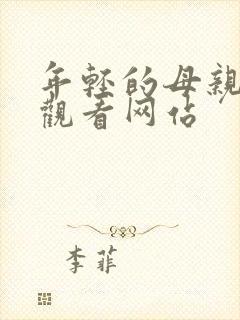 年轻的母亲
觀看网佔
李菲